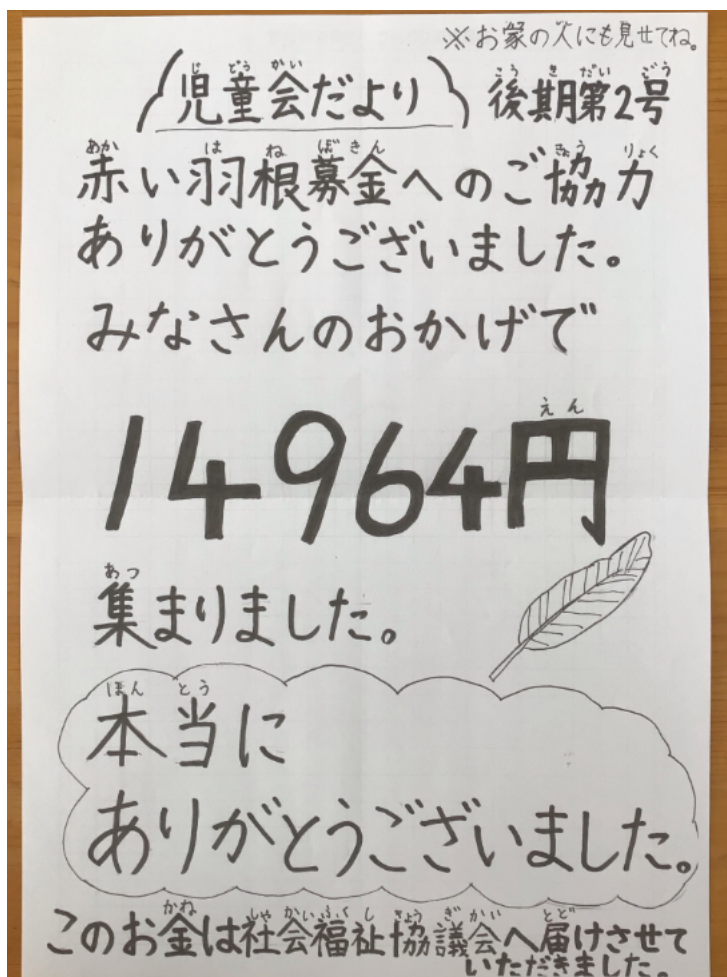 ※お家の人にも見せてね。
児童会だより 後期第2号
赤い羽根募金へのご協力
ありがとうございました。
みなさんのおかげで
14964円
集まりました。
本当に
ありがとうございました。
このお金は社会福祉協議会へ届けさせて
いただきました。